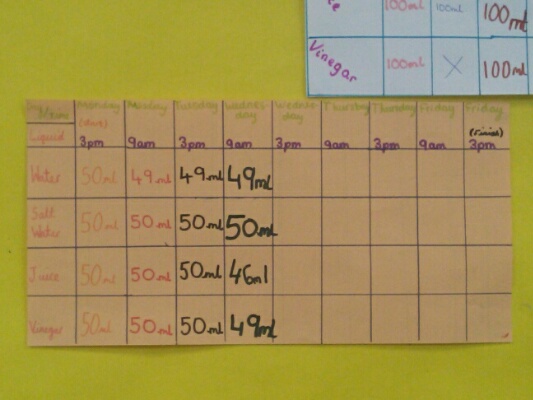 100ml 100ml 100ml
Vinegar 100ml X 100ml
Monday Tuesday Wednes-day Wednes-day Thursday Thursday Friday Friday
Liquid 3pm 9am 3pm 9am 3pm 9am 3pm 9am 3pm
Water 50ml 49ml 49ml 49ml
Salt Water 50ml 50ml 50ml 50ml
Juice 50ml 50ml 50ml 46ml
Vinegar 50ml 50ml 50ml 49ml